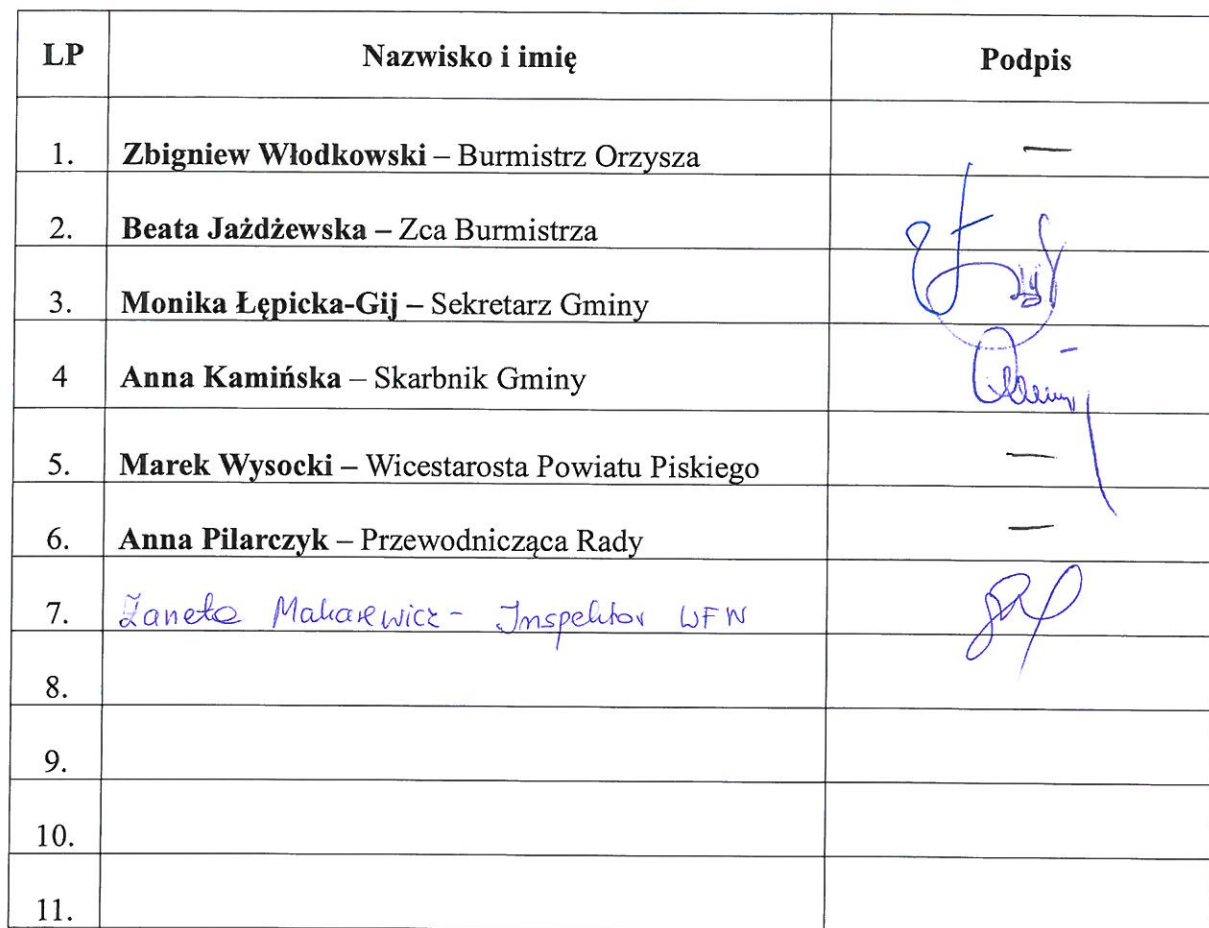 LP Nazwisko i imię Podpis
1. Zbigniew Włodkowski – Burmistrz Orzysza —
2. Beata Jażdżewska – Zca Burmistrza
3. Monika Łępicka-Gij – Sekretarz Gminy
4 Anna Kamińska – Skarbnik Gminy
5. Marek Wysocki – Wicestarosta Powiatu Piskiego —
6. Anna Pilarczyk – Przewodnicząca Rady —
7. Żaneta Makarewicz - Inspektor WFN
8.
9.
10.
11.